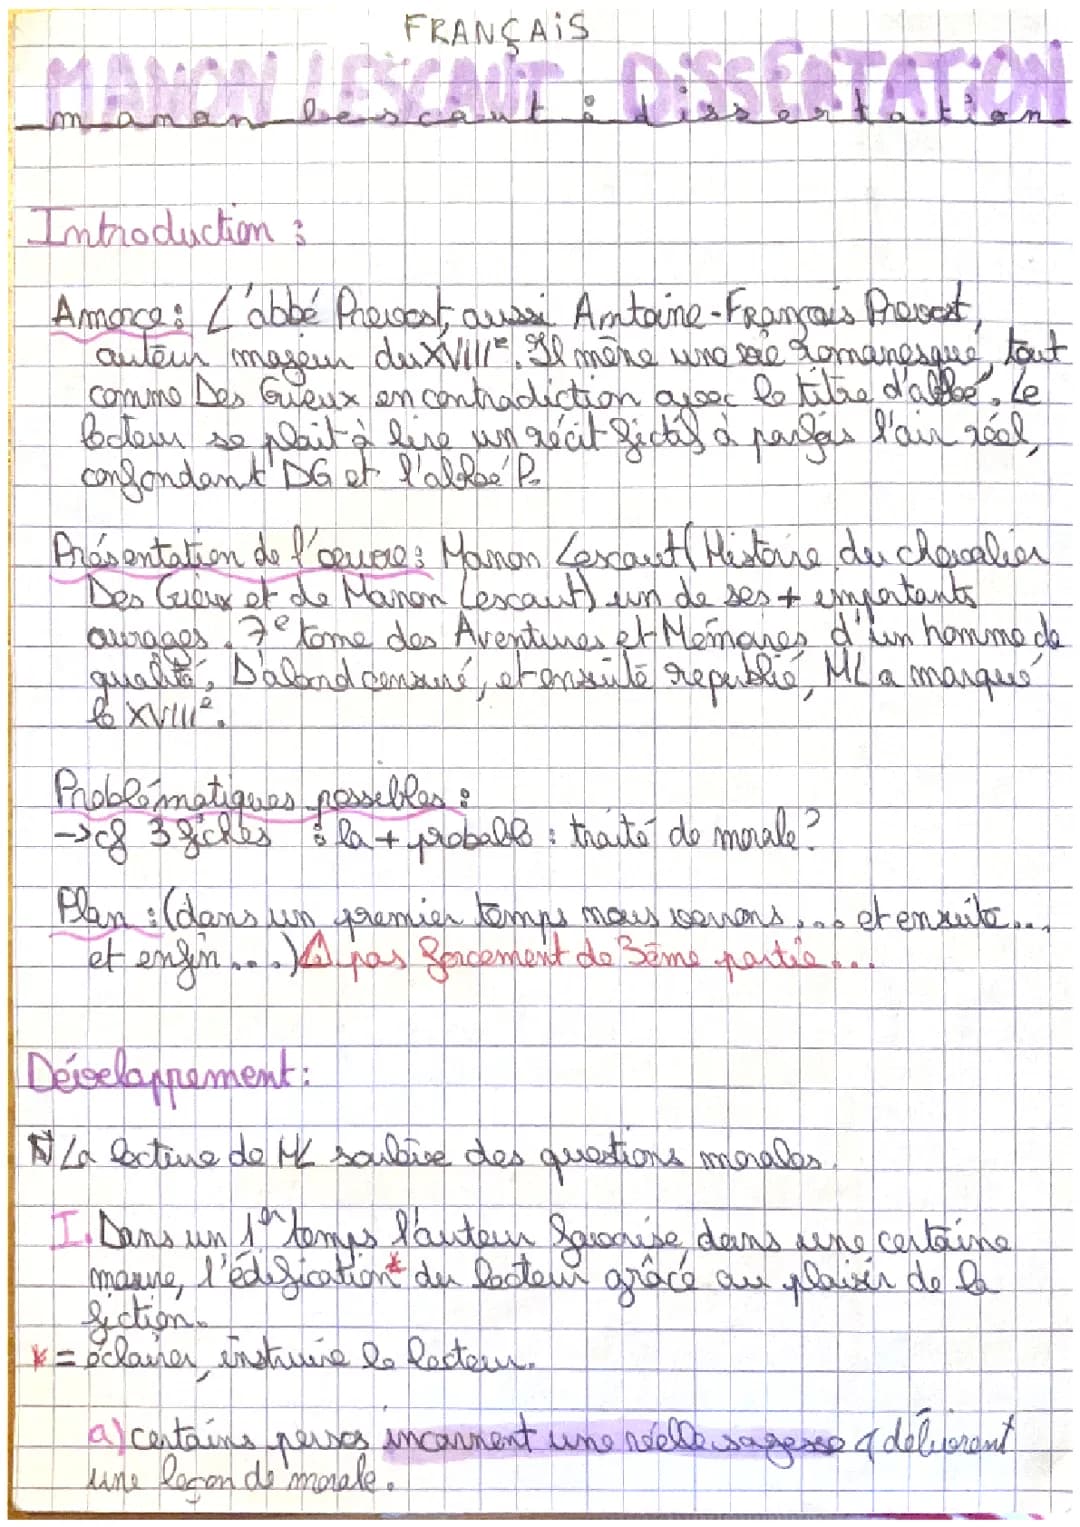 FRANÇAIS
MANON LESCAUT DISSERTATION
manon lescaut : dissertation
Introduction :
Amorce : L'abbé Prevost, aussi Antoine-François Prevost,
auteur majeur du XVIIIe. Il mène une vie romanesque, tout
comme Des Grieux en contradiction avec le titre d'abbé. Le
lecteur se plait à lire un récit fictif à parfois l'air réel,
confondant DG et l'abbé P.
Présentation de l'œuvre : Manon Lescaut (Histoire du chevalier
Des Grieux et de Manon Lescaut) un de ses + importants
ouvrages. 7e tome des Aventures et Mémoires d'un homme de
qualité, D'abord censuré, et ensuite republié, ML a marqué
le XVIIIe.
Problématiques possibles :
-> cf 3 fiches : la + probable : traité de morale ?
Plan : (dans un premier temps nous verrons ... et ensuite ...
et enfin ...) ⚠ pas forcement de 3ème partie ...
Développement :
La lecture de ML soulève des questions morales.
I. Dans un 1er temps l'auteur favorise, dans une certaine
mesure, l'édification* du lecteur grâce au plaisir de la
fiction.
* = éclairer, instruire le lecteur.
a) certains persos incarnent une réelle sagesse & délivrent
une leçon de morale.